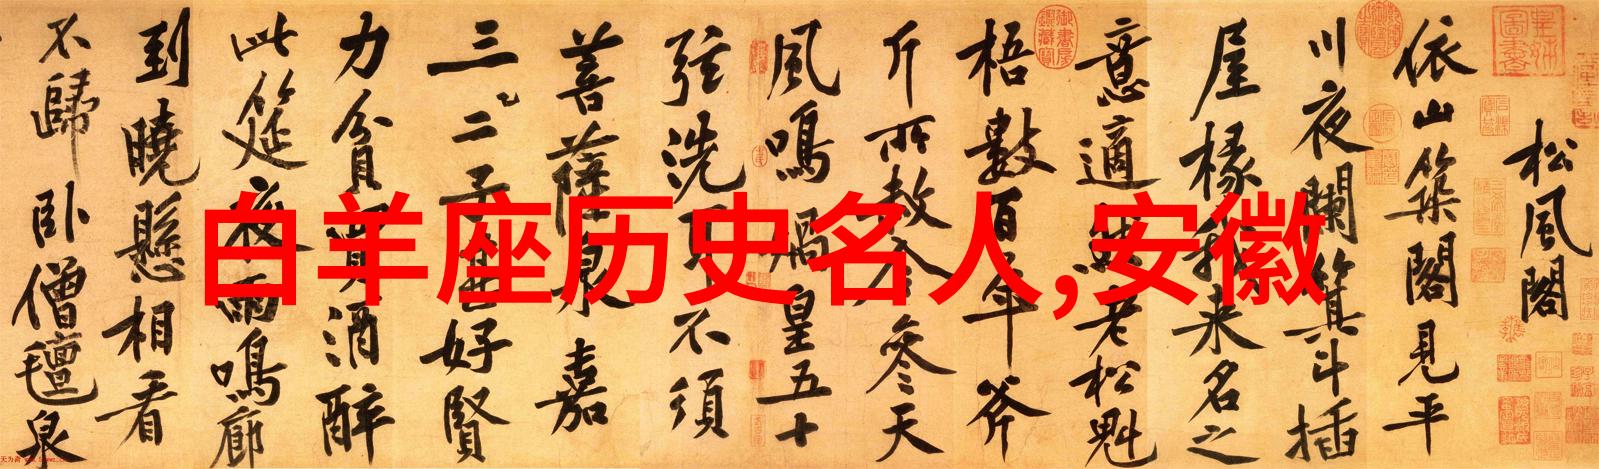 白羊座历史名人,安徽
松風閣
依山築閣見平
川夜闌箕斗插
屋椽我来名之
意適然老松魁
梧數百年斧
斤所赦今參天
風鳴媧皇五十
弦洗耳不須
菩薩泉嘉
三二子甚好賢
力貧買酒醉
此筵夜雨鳴廊
到曉懸相看
不歸臥僧氊泉